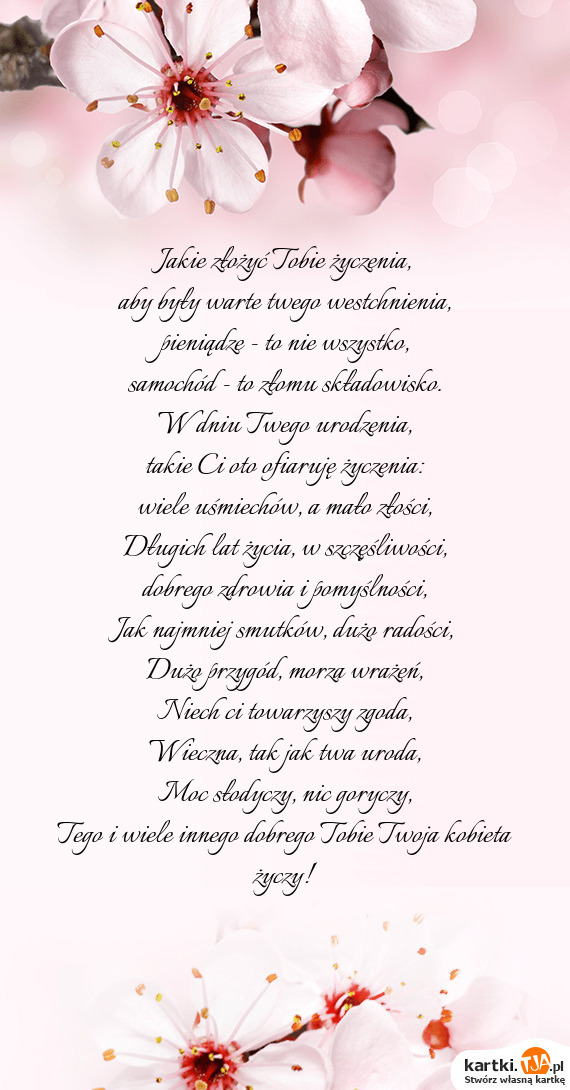 Jakie złożyć Tobie życzenia,
aby były warte twego westchnienia,
pieniądze - to nie wszystko,
samochód - to złomu składowisko.
W dniu Twego urodzenia,
takie Ci oto ofiaruję życzenia:
wiele uśmiechów, a mało złości,
Długich lat życia, w szczęśliwości,
dobrego zdrowia i pomyślności,
Jak najmniej smutków, dużo radości,
Dużo przygód, morza wrażeń,
Niech ci towarzyszy zgoda,
Wieczna, tak jak twa uroda,
Moc słodyczy, nic goryczy,
Tego i wiele innego dobrego Tobie Twoja kobieta
życzy!
kartki.TJA.pl
Stwórz własną kartkę